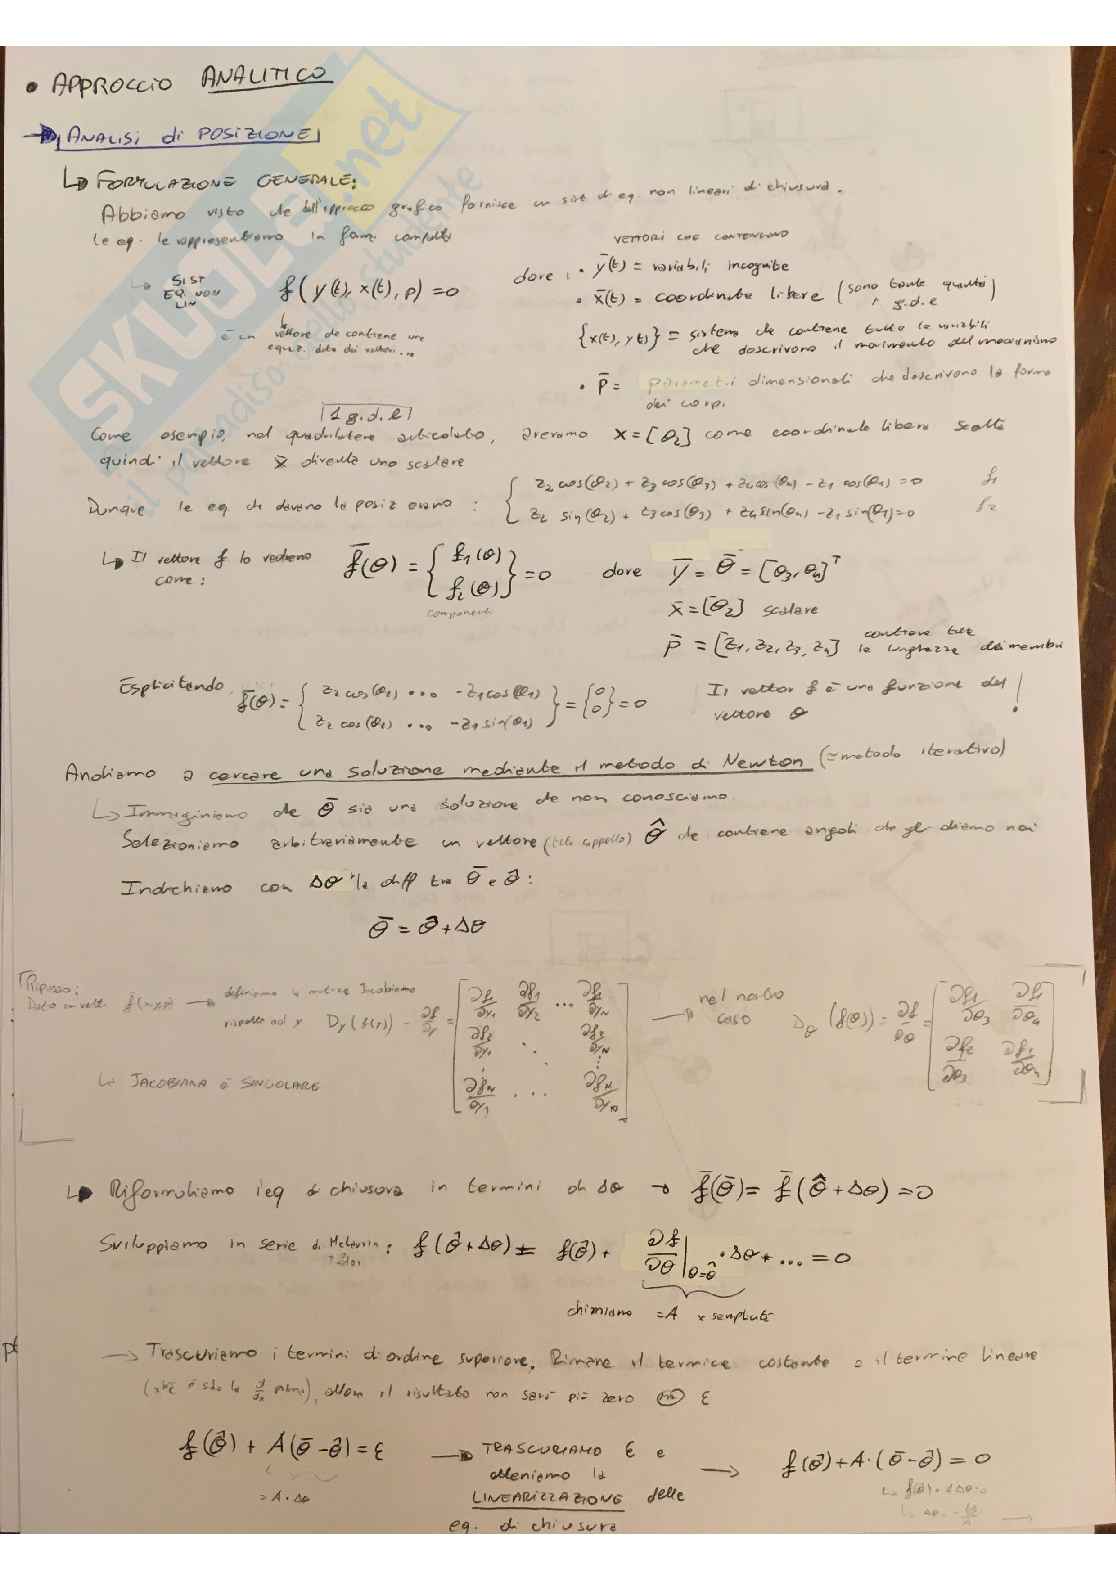 • APPROCCIO ANALITICO
→ ANALISI di POSIZIONE
↳ FORMULAZIONE GENERALE:
Abbiamo visto che dall'approccio grafico fornisce un sist di eq non lineari di chiusura.
Le eq. le rappresentiamo in forma compatta
VETTORI CHE CONTENGONO
↳ SIST EQ. NON LIN f(y(t), x(t), p) = 0 dove: • ȳ(t) = variabili incognite
• x̄(t) = coordinate libere (sono tante quanti i g.d.e)
è un vettore che contiene una equaz. data dai vettori...
{x(t), y(t)} = sistema che contiene tutte le variabili che descrivono il movimento del meccanismo
• p̄ = parametri dimensionali che descrivono la forma dei corpi.
|1 g.d.e|
Come esempio, nel quadrilatero articolato, avremo x = [θ2] come coordinata libera scelta
quindi il vettore x̄ diventa uno scalare
Dunque le eq che davano la posiz erano: { z2 cos(θ2) + z3 cos(θ3) + z4 cos(θ4) - z1 cos(θ1) = 0 f1
z2 sin(θ2) + z3 cos(θ3) + z4 sin(θ4) - z1 sin(θ1) = 0 f2
↳ Il vettore f lo vediamo come: f̄(θ) = { f1(θ) f2(θ) } = 0 dove ȳ = θ̄ = [θ3, θ4]ᵀ
componenti
x̄ = [θ2] scalare
p̄ = [z1, z2, z3, z4] contiene tutte le lunghezze dei membri
Esplicitando, f̄(θ) = { z2 cos(θ2) ... - z1 cos(θ1) z2 cos(θ2) ... - z1 sin(θ1) } = {0 0} = 0 Il vettor f è una funzione del vettore θ !
Andiamo a cercare una soluzione mediante il metodo di Newton (= metodo iterativo)
↳ Immaginiamo che θ̄ sia una soluzione che non conosciamo.
Selezioniamo arbitrariamente un vettore (teta cappello) θ̂ che contiene angoli che gli diamo noi
Indichiamo con Δθ la diff tra θ̄ e θ̂:
θ̄ = θ̂ + Δθ
Ripasso:
Dato un vett. → definiamo la matrice Jacobiana
rispetto ad y Dy(f(y)) = ∂f/∂y = [ ∂f1/∂y1 ∂f1/∂y2 ... ∂f1/∂yN ; ∂f2/∂y1 ... ∂f2/∂yN ; ∂fN/∂y1 ... ∂fN/∂yN ] → nel nostro caso Dθ(f(θ)) = ∂f/∂θ = [ ∂f1/∂θ3 ∂f1/∂θ4 ; ∂f2/∂θ3 ∂f2/∂θ4 ]
La JACOBIANA è SINGOLARE
↳ Riformuliamo l'eq di chiusura in termini di Δθ → f̄(θ̄) = f̄(θ̂ + Δθ) = 0
Sviluppiamo in serie di : f(θ̂ + Δθ) = f(θ̂) + ∂f/∂θ |θ=θ̂ · Δθ + ... = 0
chiamiamo = A x semplicità
→ Trascuriamo i termini di ordine superiore. Rimane il termine costante e il termine lineare
allora il risultato non sarà più zero ma ε
f(θ̂) + A(θ̄ - θ̂) = ε → TRASCURIAMO ε e otteniamo la LINEARIZZAZIONE delle eq. di chiusura → f(θ̂) + A·(θ̄ - θ̂) = 0
= A·Δθ